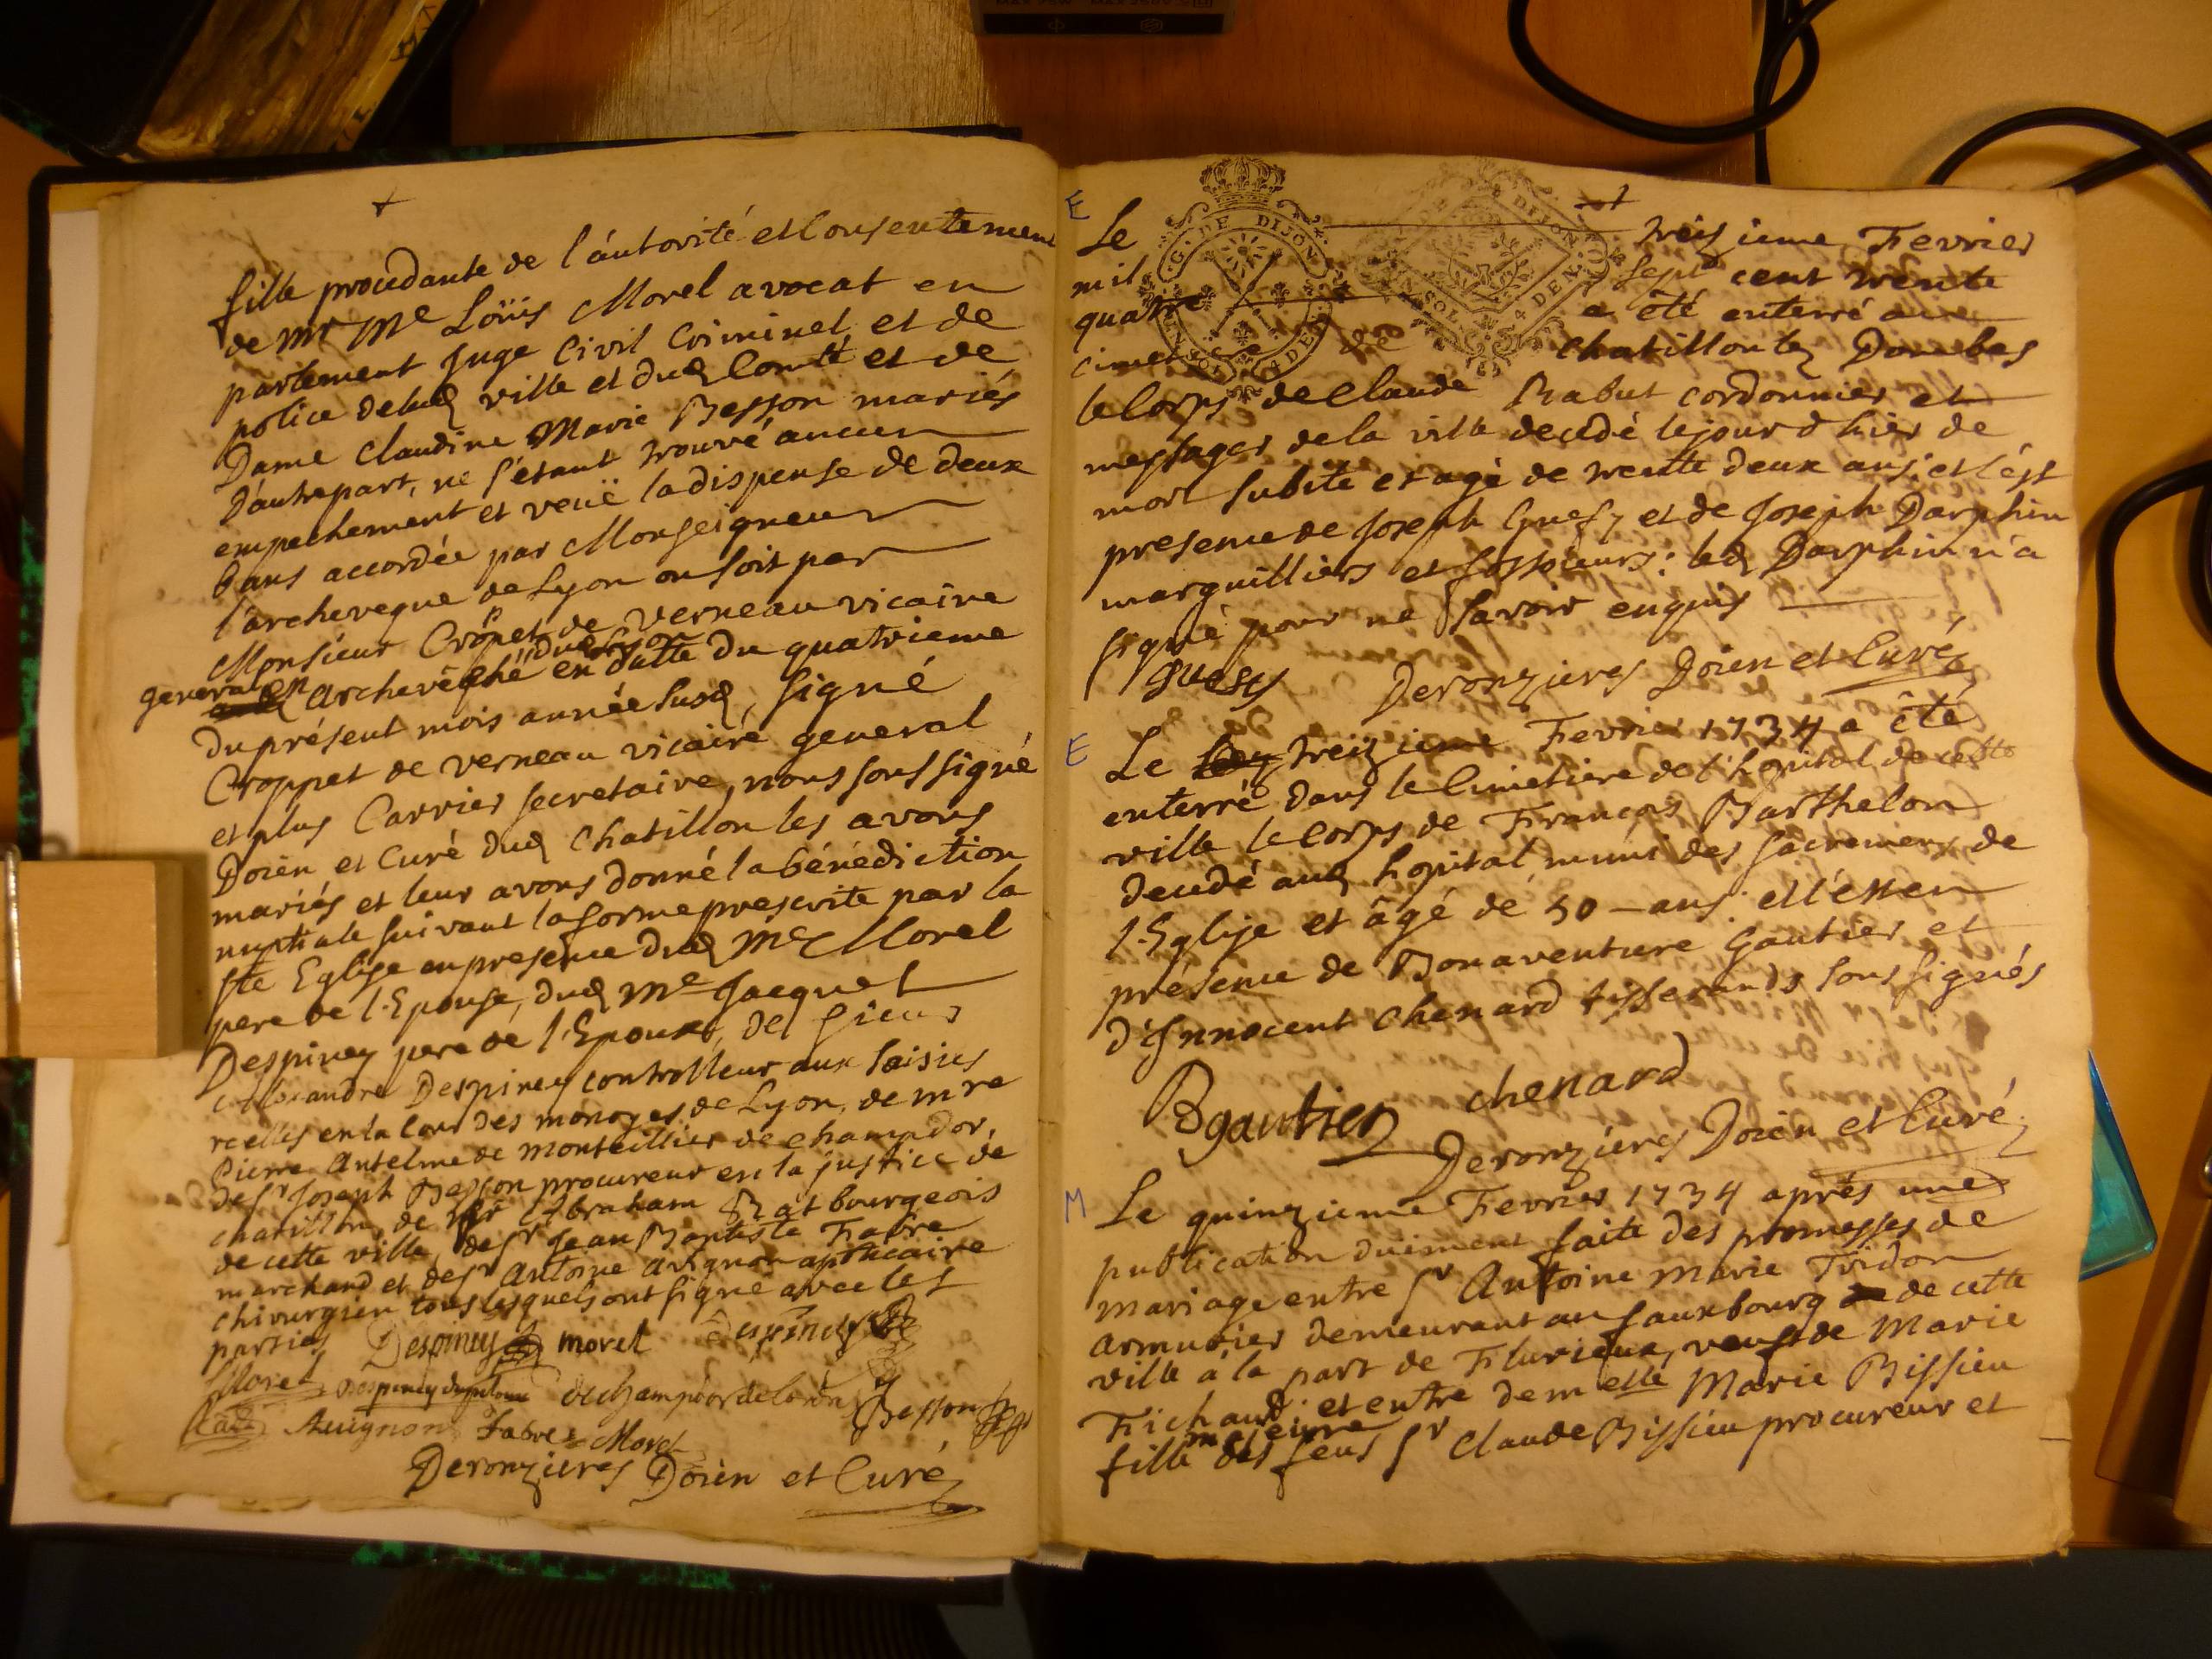 fille procedante de l'autorité et Consentement
de Mr Me Loüis Morel avocat en
parlement Juge Civil Criminel et de
police delad ville et dud Comté et de
Dame Claudine Marie Besson mariés
D'autre part, ne s'étant trouvé aucun
empechement et veüe la dispense de deux
bans accordée par Monseigneur
l'archeveque de Lyon ou soit par
Monsieur Cropet de Verneau vicaire
general en Archevêché dud Lyon en datte du quatrieme
du présent mois année susd, signé
Croppet de verneau vicaire general
et plus Carrier secretaire, nous soussigné
Doïen et Curé dud Chatillon les avons
mariés et leur avons donné la bénédiction
nuptiale suivant la forme prescrite par la
ste Eglise en presence dud Me Morel
pere de l'Epouse, dud Me Jacquet
Despiney pere de l'Epoux, de sieur
Alexandre Despiney controlleur aux saisies
reelles en la Cour des monoyes de Lyon, de mre
Pierre Antelme de Monteillier de champdor,
de sr Joseph Besson procureur en la justice de
chatillon, de Abraham Rat bourgeois
de cette ville, de sr Jean Baptiste Fabre
marchand et de sr Antoine Avignon apoticaire
chirurgien tous lesquels ont signé avec les
parties Despiney morel Despiney
Morel de champdor Besson
Avignon Fabre Morel
Deronzieres Doïen et Curé
E
G. DE DIJON
DIJON
UN SOL
4 DEN
Le treizieme Fevrier
mil sept cent trente
quatre a été enterré au
cimetiere de chatillon lez Dombes
le Corps de Claude Rabut cordonnier et
messager de la ville decedé le jour d'hier de
mort subite et agé de trente deux ans. et c'est
presence de Joseph Guesy et de Joseph Darphin
marguilliers et fossoieurs: led Darphin n'a
signé pour ne savoir enquis
guesy Deronzieres Doïen et Curé
E
Le treizieme Fevrier 1734 a été
enterré dans le Cimetiere de l'hopital de cette
ville le Corps de François Barthelon
decedé aud hopital, muni des sacremens de
l'Eglise et âgé de 50 - ans. et c'est en
présence de Bonaventure Gautier et
d'Innocent Chenard tisserands soussignés
Bgautier chenard
Deronzieres Doïen et Curé
M
Le quinzieme Fevrier 1734 aprés une
publication duiment faite des promesses de
mariage entre sr Antoine Marie Tridon
armurier demeurant au fauxbourg de cette
ville à la part de Flurieux, veuf de Marie
Trichaud, et entre demelle Marie Bissieu
fille majeure des feus sr Claude Bissieu procureur et